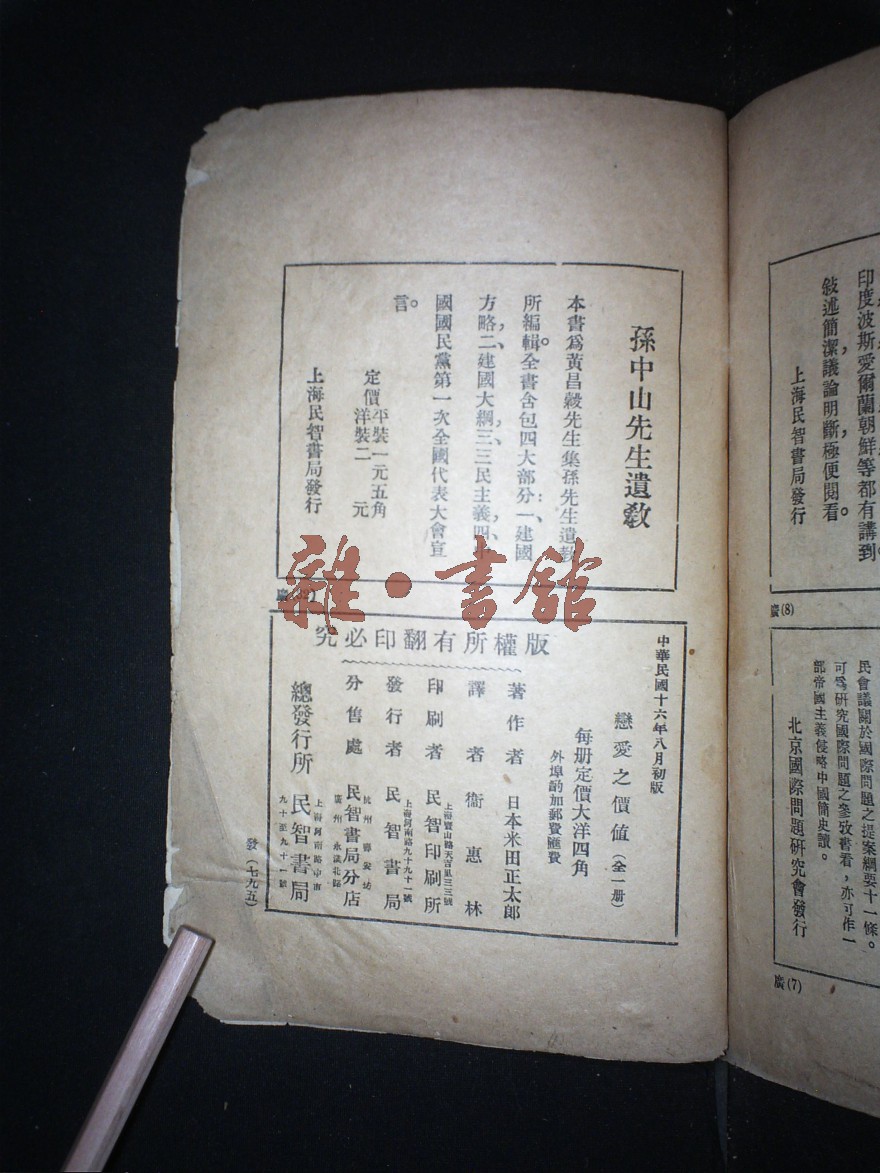 孫中山先生遺敎
本書爲黃昌穀先生集孫先生遺敎
所編輯。全書含包四大部分:一、建國
方略,二、建國大綱,三、三民主義,四、中
國國民黨第一次全國代表大會宣
言。
定價平裝一元五角
洋裝二元
上海民智書局發行
雜·書館
中華民國十六年八月初版
戀愛之價值(全一册)
每册定價大洋四角
外埠酌加郵費匯費
版權所有翻印必究
著作者 日本米田正太郎
譯者 衞惠林
上海寶山路天吉里三三號
印刷者 民智印刷所
上海河南路九十九十一號
發行者 民智書局
杭州 壽安坊
分售處 民智書局分店
廣州 永漢北路
總發行所 民智書局
上海河南路中市
九十至九十一號
發(七九五)
印度波斯愛爾蘭朝鮮等都有講到。
敍述簡潔,議論明斷,極便閱看。
上海民智書局發行
廣(8)
民會議關於國際問題之提案綱要十一條。
可爲研究國際問題之參攷書看,亦可作一
部帝國主義侵略中國簡史讀。
北京國際問題研究會發行
廣(7)